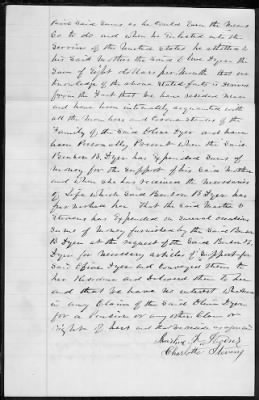 paid said sums as he could earn the means
so to do and when he enlisted into the
service of the United States he allotted to
his said mother the said Olive Dyer the
sum of Eight dollars per month that our
knowledge of the above stated facts is derived
from the fact that we have resided near
and have been intimately acquainted with
all the members and circumstances of the
family of the said Olive Dyer and have
been personally present when the said
Reuben B. Dyer has expended sums of
money for the support of his said mother
and when she has received the necessaries
of life which said Reuben B. Dyer has
furnished her That the said Martin
Stevens has expended on several occasions
sums of money furnished by the said Reuben
B Dyer at the request of the said Reuben B.
Dyer for necessary articles of support for
said Olive Dyer and conveyed them to
her residence and delivered them to her
and that we have no interest whatever
in any claim of the said Olive Dyer
for a Pension or any other claim or
right of hers and that we reside as aforesaid
Stevens
Charlotte Stevens